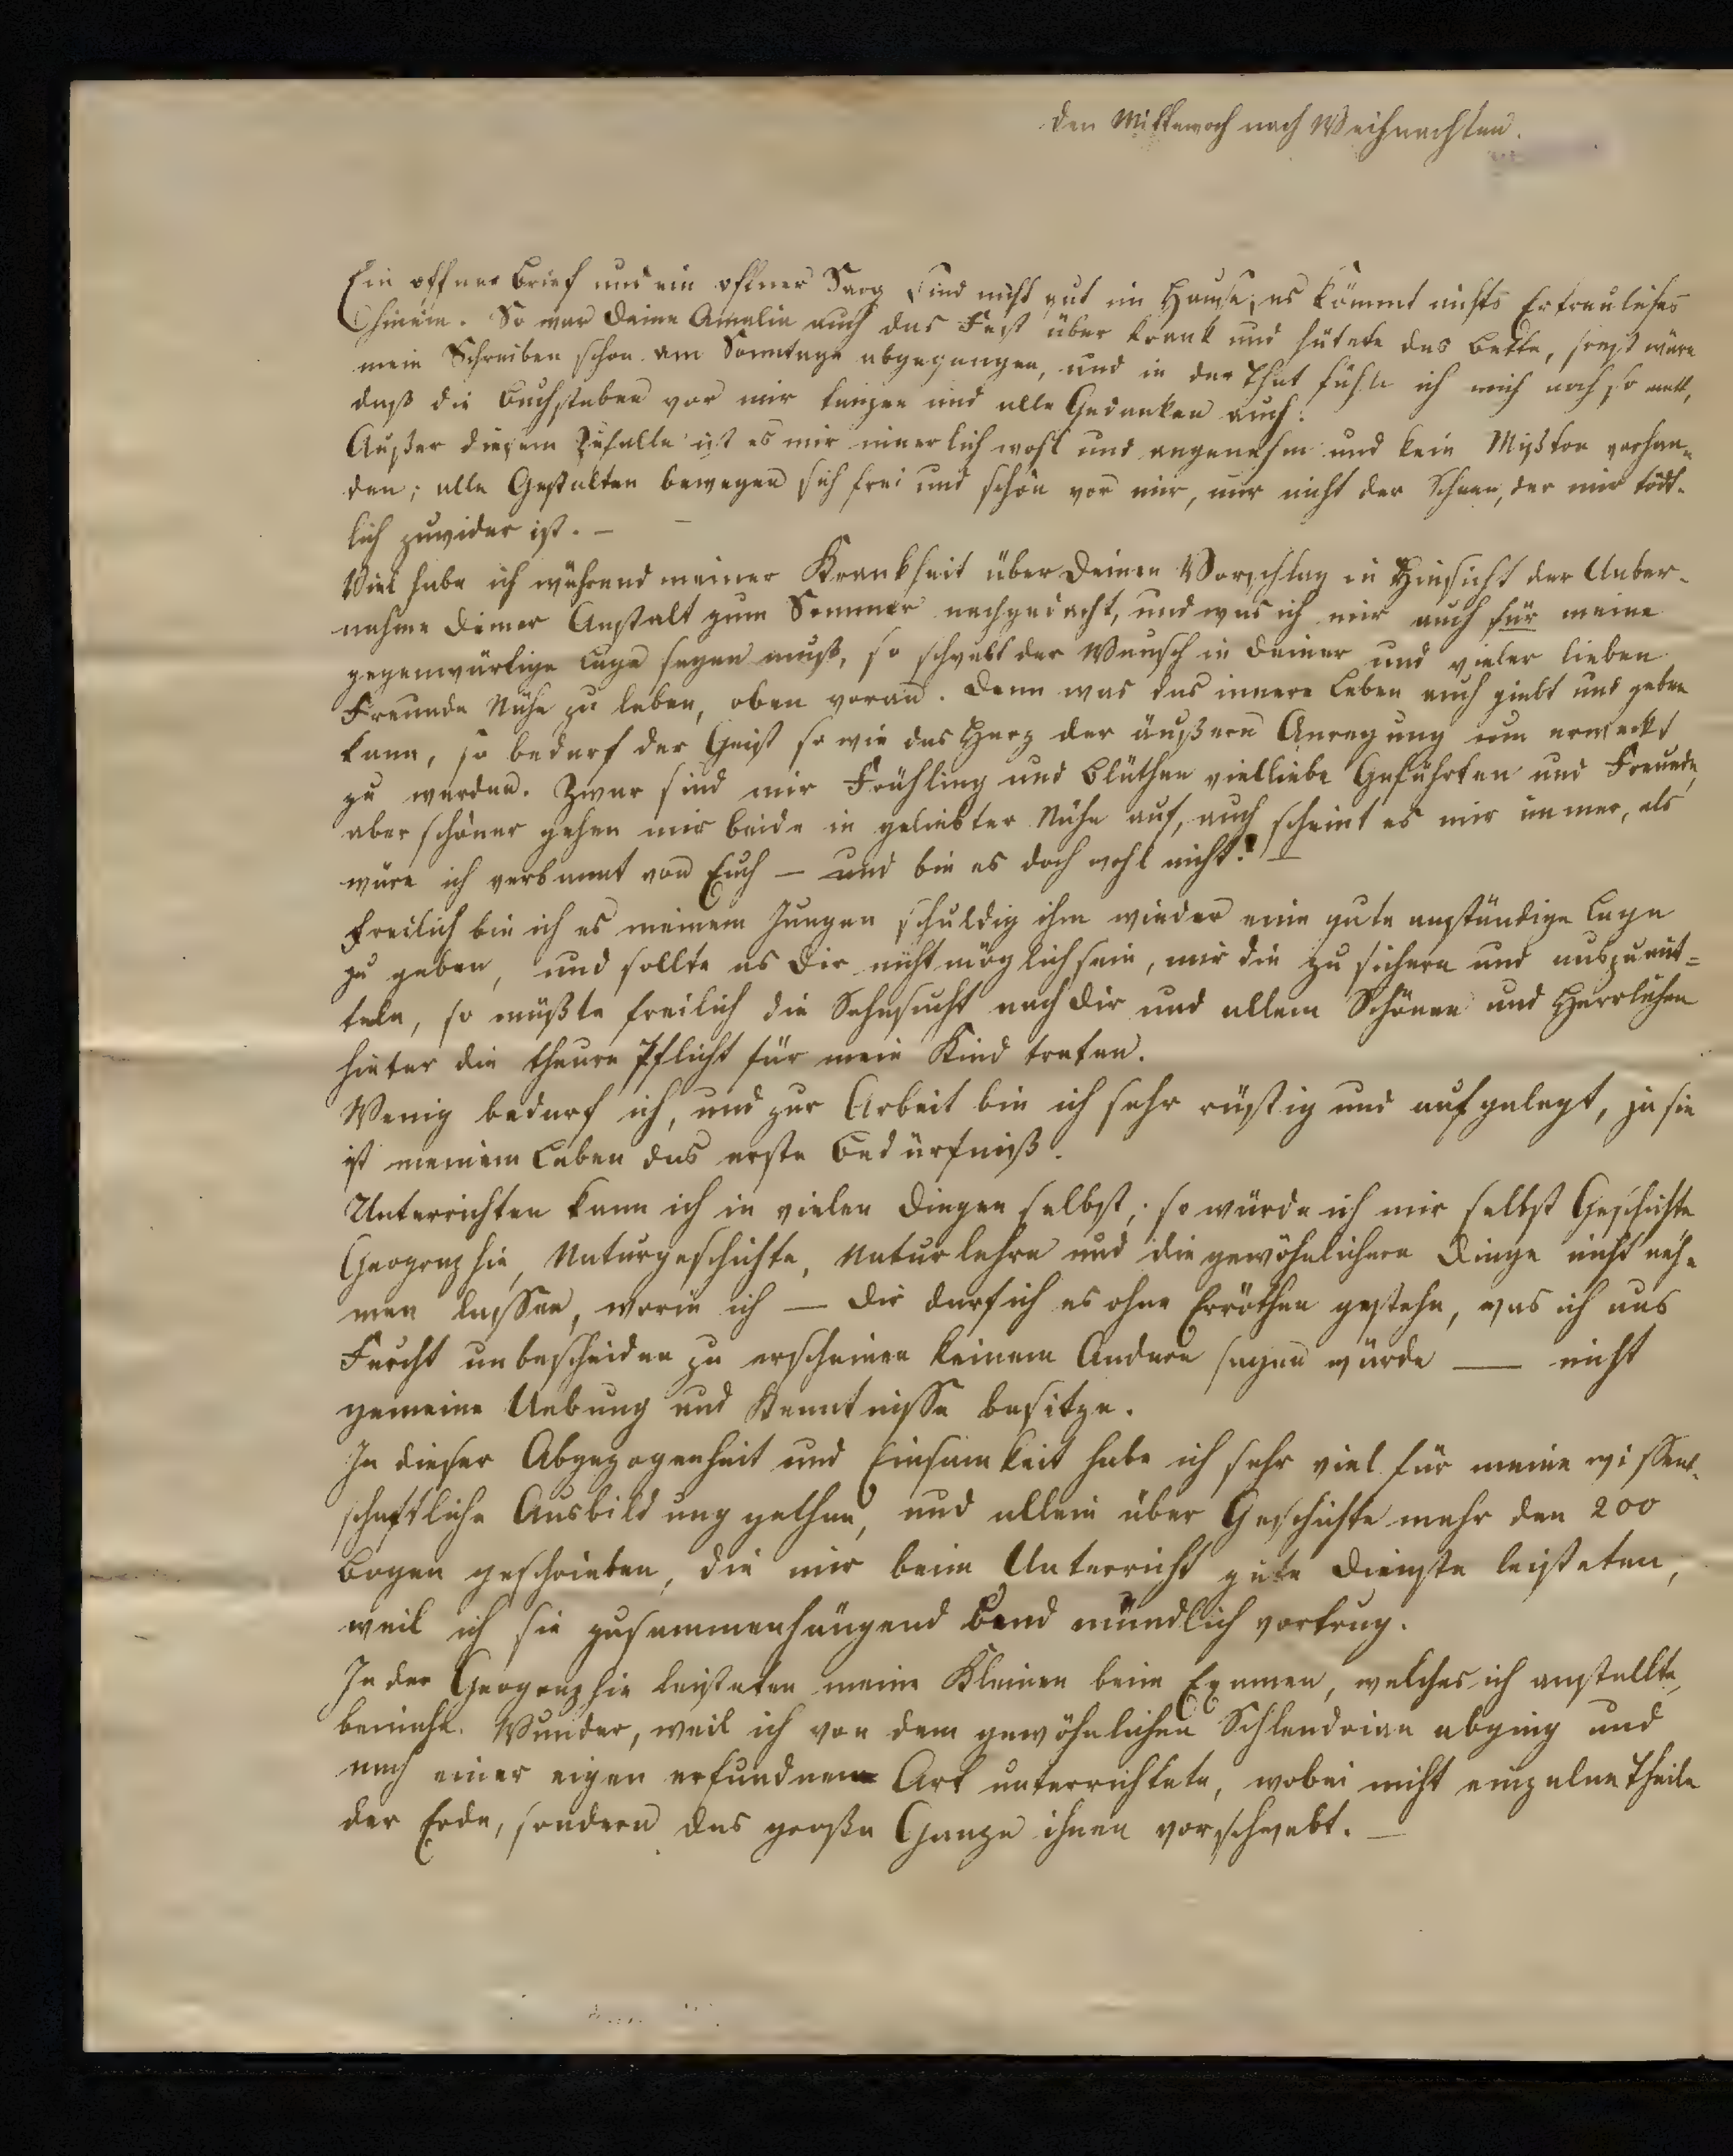 den Mittewoch nach Weihnachten.
Ein offner Brief und ein offner Sarg sind nicht gut im Hause, es kömmt nichts Erfreuliches
hinein. So war Deine Amalia auch das Fest über krank und hütete das Bette, sonst wäre
mein Schreiben schon am Sonntage abgegangen, und in der That fühle ich mich noch so matt,
daß die Buchstaben vor mir tanzen und alle Gedanken auch.
Außer diesem Zufalle ist es mir innerlich wohl und angenehm und kein Mißton vorhan-
den; alle Gestalten bewegen sich frei und schön vor mir, nur nicht der Schnee, der mir tödt-
lich zuwider ist. —
Viel habe ich während meiner Krankheit über Deinen Vorschlag in Hinsicht der Ueber-
nahme Deiner Anstalt zum Sommer nachgedacht, und was ich mir auch für meine
gegenwärtige Lage sagen muß, so schwebt der Wunsch in Deiner und vieler lieben
Freunde Nähe zu leben, oben voran. Denn was das innere Leben auch giebt und geben
kann, so bedarf der Geist so wie das Herz der äußern Anregung um erweckt
zu werden. Zwar sind mir Frühling und Blüthen vielliebe Gefährten und Freunde,
aber schöner gehen mir beide in geliebter Nähe auf, auch scheint es mir immer, als
wäre ich verbannt von Euch — und bin es doch wohl nicht! —
Freilich bin ich es meinem Jungen schuldig ihm wieder eine gute anständige Lage
zu geben, und sollte es Dir nicht möglich sein, mir die zu sichern und auszumit=
teln, so müßte freilich die Sehnsucht nach Dir und allem Schönen und Herrlichen
hinter die theure Pflicht für mein Kind treten.
Wenig bedarf ich, und zur Arbeit bin ich sehr rüstig und aufgelegt, ja sie
ist meinem Leben das erste Bedürfniß.
Unterrichten kann ich in vielen Dingen selbst; so würde ich mir selbst Geschichte
Geographie, Naturgeschichte, Naturlehre und die gewöhnlichern Dinge nicht neh-
men lassen, worin ich — Dir darf ich es ohne Erröthen gestehn, was ich aus
Furcht unbescheiden zu erscheinen keinem Andern sagen würde — nicht
gemeine Uebung und Kenntnisse besitze.
In dieser Abgezogenheit und Einsamkeit habe ich sehr viel für meine wissen-
schaftliche Ausbildung gethan, und allein über Geschichte mehr den 200
Bogen geschrieben, die mir beim Unterricht gute Dienste leisteten,
weil ich sie zusammenhängend und mündlich vortrug.
In der Geographie leisteten meine Kleinen beim Examen, welches ich anstellte,
beinahe Wunder, weil ich von dem gewöhnlichen Schlendrian abging und
nach einer eigen erfundnen Art unterrichtete, wobei nicht einzelne Theile
der Erde, sondern das große Ganze ihnen vorschwebt. —